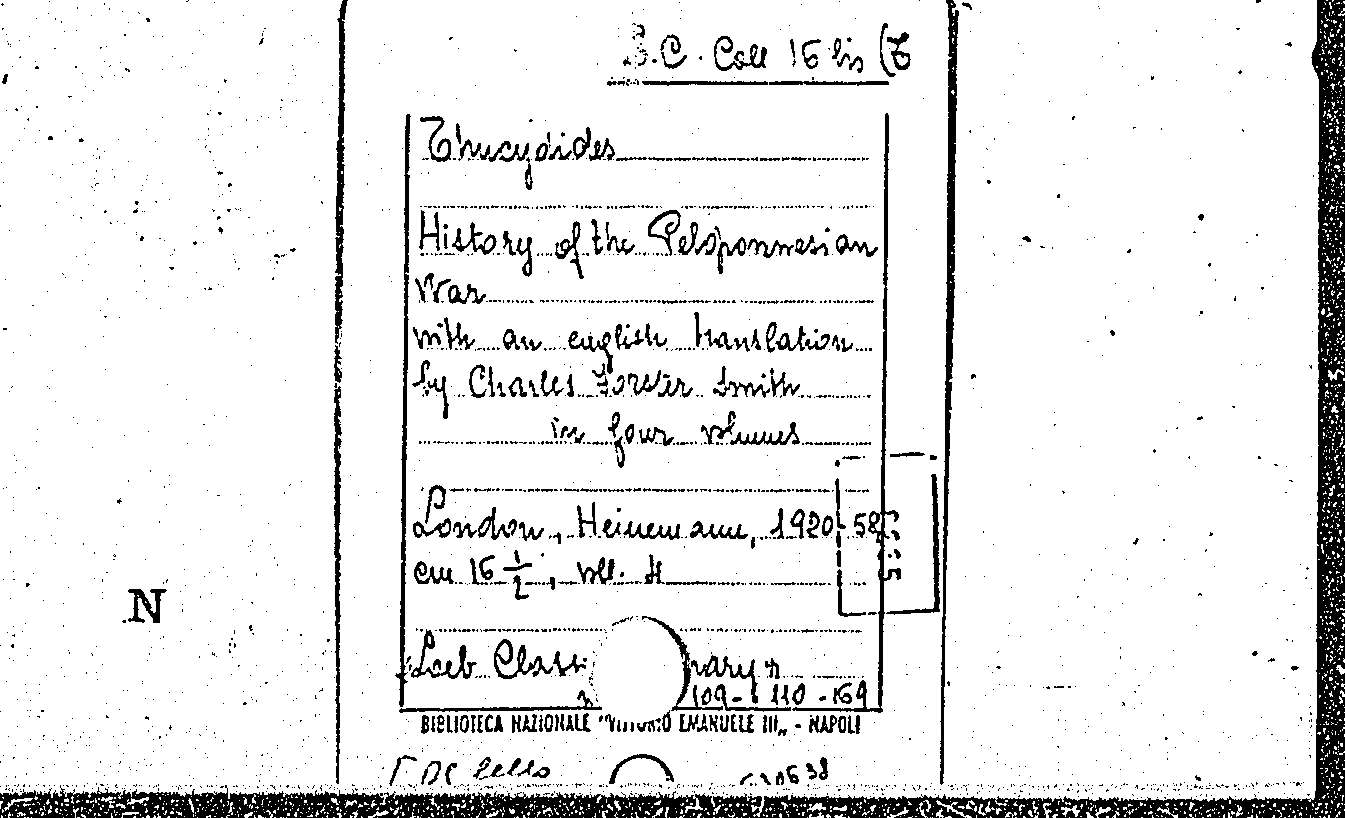 B.C. Coll 16 bis (6
Thucydides
History of the Peloponnesian
War
with an english translation
by Charles Forster Smith
in four volumes
London, Heinemann, 1920-58
cm 16 1/2, voll. 4
"Loeb Class rary"
109- 110 -169
BIBLIOTECA NAZIONALE "VITTORIO EMANUELE III„ - NAPOLI
N